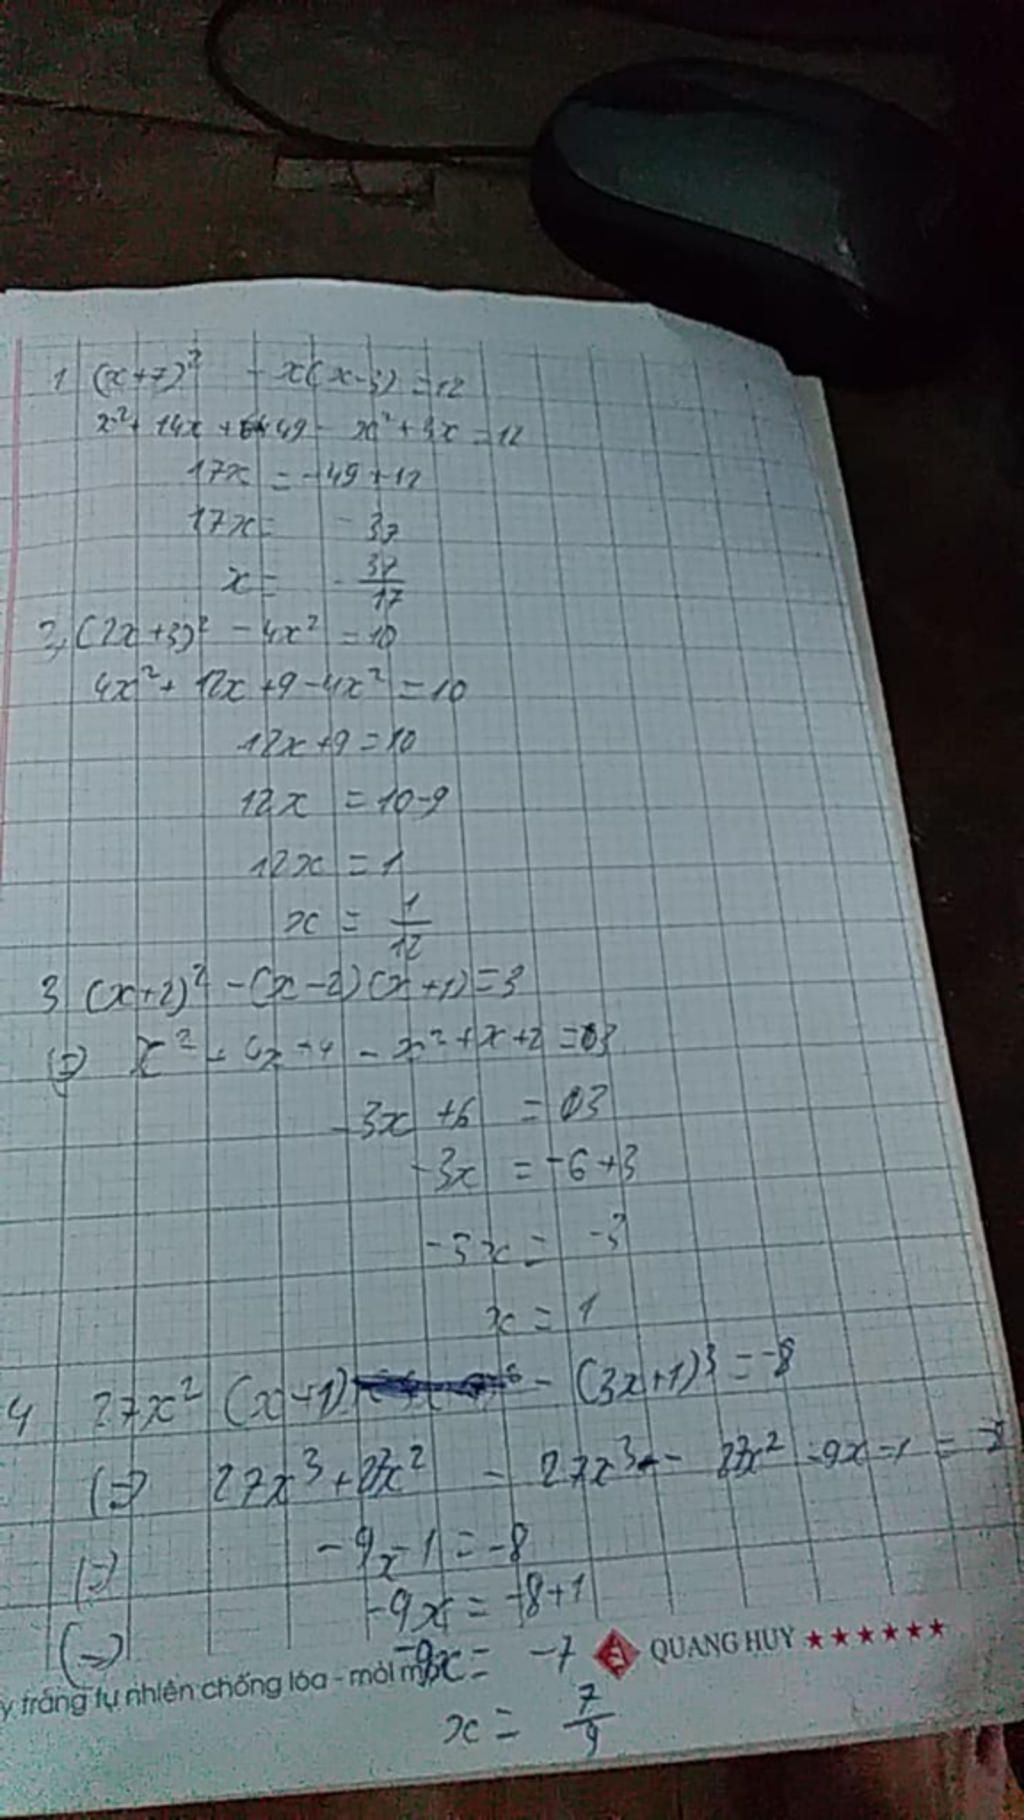 1 (x+7)² - x(x-3) = 12
x² + 14x + 49 - x² + 3x = 12
17x = -49 + 12
17x = - 37
x = - 37/17
2, (2x+3)² - 4x² = 10
4x² + 12x + 9 - 4x² = 10
12x + 9 = 10
12x = 10-9
12x = 1
x = 1/12
3 (x+2)² - (x-2)(x+1) = 3
(=) x² - 4x - 4 - x² + x + 2 = 3
-3x + 6 = 3
-3x = -6 + 3
-3x = -3
x = 1
4 27x² (x+1) - (3x+1)³ = -8
(=) 27x³ + 27x² - 27x³ - 27x² - 9x - 1 = -8
(=) -9x - 1 = -8
-9x = -8+1
(=) -9x = -7
QUANG HUY ★★★★★★
trắng tự nhiên chống lóa - mỏi
x = 7/9